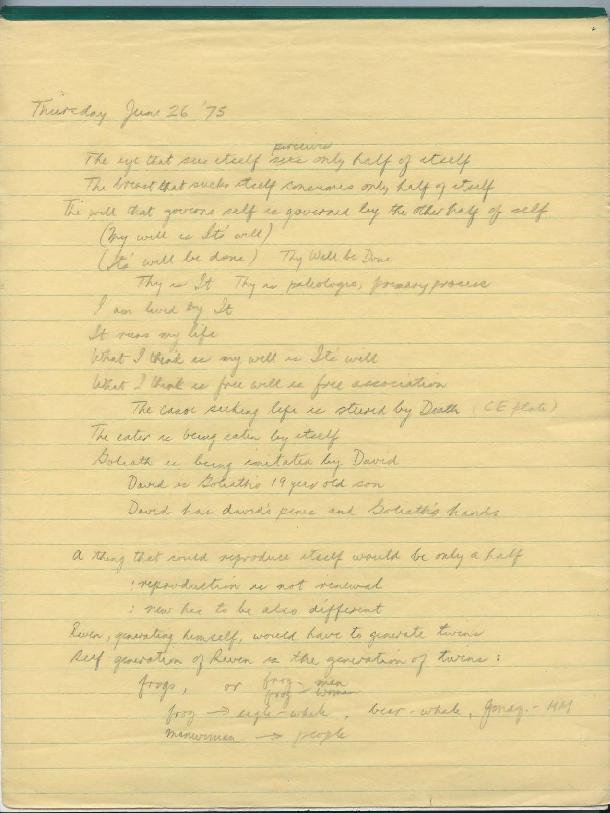 Thursday June 26 '75
perceives
The eye that sees itself sees only half of itself
The breast that sucks itself consumes only half of itself
The will that governs self is governed by the other half of self
(My will is Its' will)
(Its' will be done) Thy Will be Done
Thy is It Thy is paleologic, primary process
I am lived by It
It runs my life
What I think is my will is Its' will
What I think is free will is free association
The canoe seeking life is steered by Death (CE plate)
The eater is being eaten by itself
Goliath is being imitated by David
David is Goliath's 19 year old son
David has david's penis and Goliath's hands
A thing that could reproduce itself would be only a half
: reproduction is not renewal
: new has to be also different
Raven, generating himself, would have to generate twins
Self generation of Raven is the generation of twins :
frogs, or frog - men
frog - woman
frog → eagle - whale, bear - whale, - HM
manwoman → people